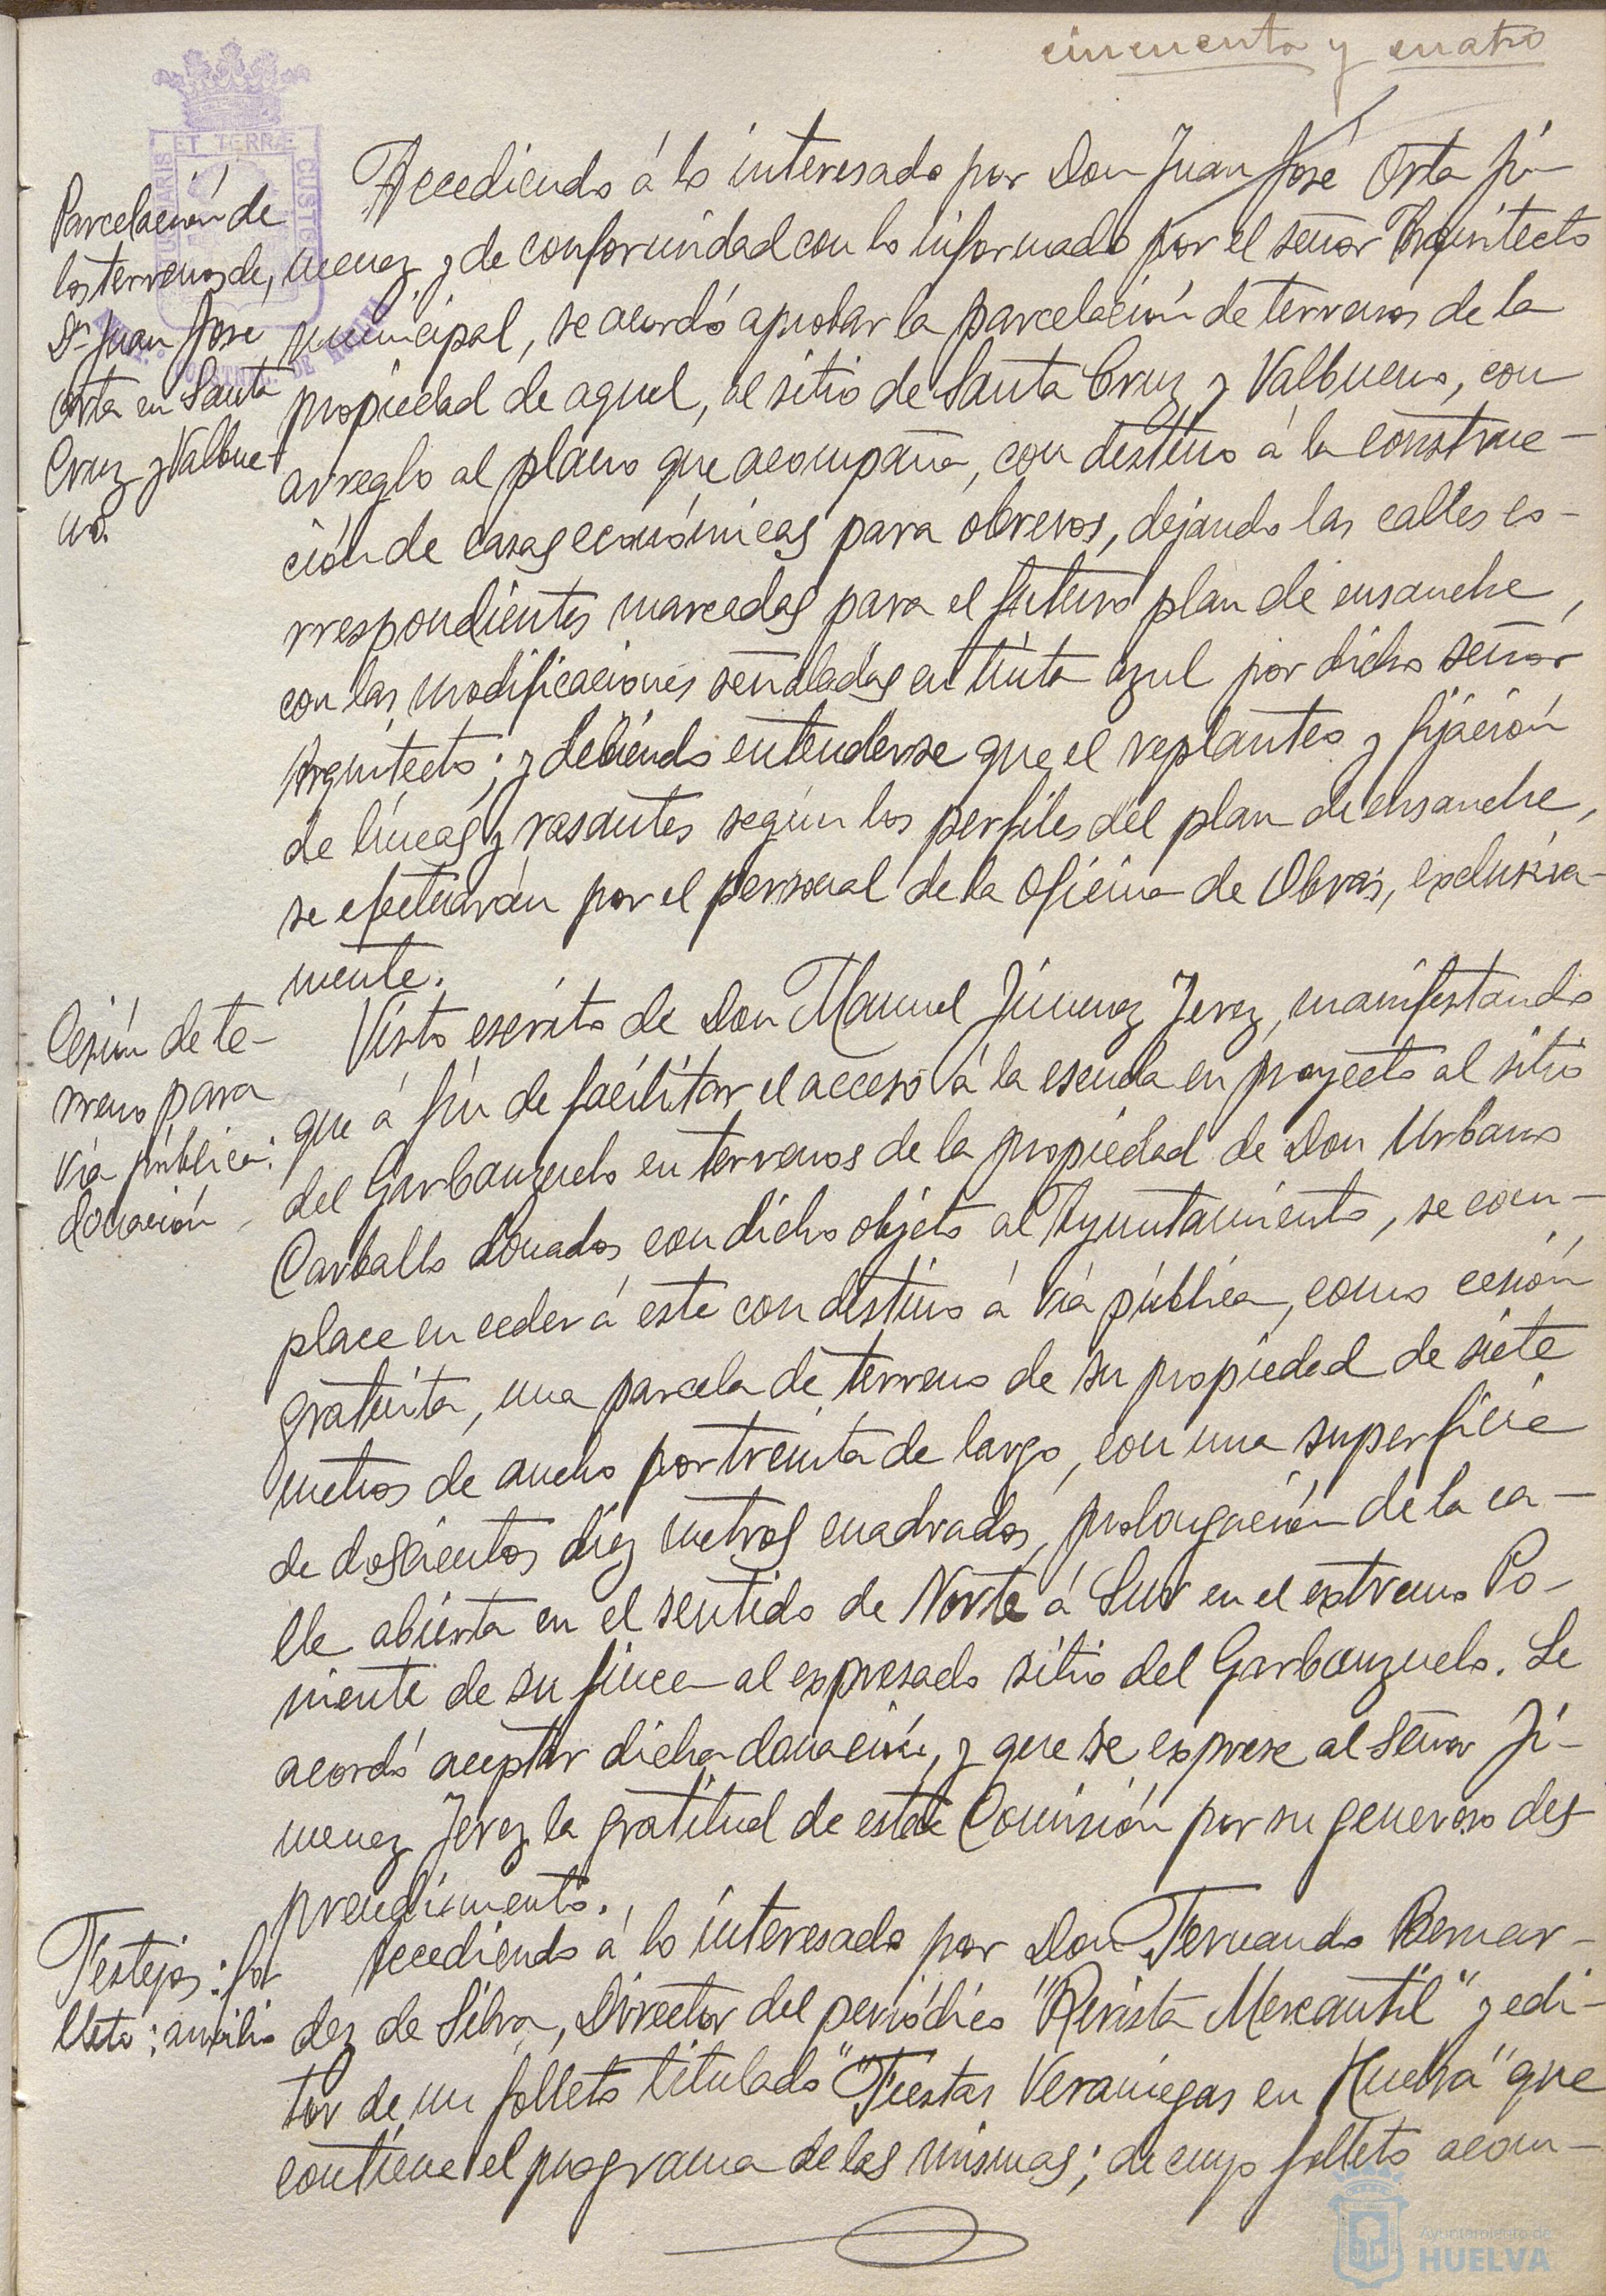 cincuenta y cuatro
ET TERRÆ
CUSTO
MARIS
Parcelación de
los terrenos de
Dn Juan José
Orta en Santa
Cruz y Valbue-
no.
Accediendo á lo interesado por Don Juan José Orta Ji-
menez y de conformidad con lo informado por el señor Arquitecto
municipal, se acordó aprobar la parcelación de terrenos de la
propiedad de aquel, al sitio de Santa Cruz y Valbueno, con
arreglo al plano que acompaña, con destino á la construc-
ción de casas económicas para obreros, dejando las calles co-
rrespondientes marcadas para el futuro plan de ensanche,
con las modificaciones señaladas en tinta azul por dicho señor
Arquitecto; y debiendo entenderse que el replanteo y fijación
de líneas y rasantes según los perfiles del plan de ensanche,
se efectuarán por el personal de la Oficina de Obras, exclusiva-
mente.
Cesión de te-
rreno para
vía pública:
donación
Visto escrito de Don Manuel Jimenez Jerez, manifestando
que á fin de facilitar el acceso á la escuela en proyecto al sitio
del Garbanzuelo en terrenos de la propiedad de Don Urbano
Carballo donados con dicho objeto al Ayuntamiento, se com-
place en ceder á este con destino á vía pública, como cesión
gratuita, una parcela de terreno de su propiedad de siete
metros de ancho por treinta de largo, con una superficie
de doscientos diez metros cuadrados, prolongación de la ca-
lle abierta en el sentido de Norte á Sur en el extremo Po-
niente de su finca al expresado sitio del Garbanzuelo. Se
acordó aceptar dicha donación, y que se exprese al señor Ji-
menez Jerez la gratitud de esta Comisión por su generoso des-
prendimiento.
Festejos: fo-
lleto; auxilio
Accediendo á lo interesado por Don Fernando Bernar-
dez de Silva, Director del periódico "Revista Mercantil" y edi-
tor de un folleto titulado "Fiestas Veraniegas en Huelva" que
contiene el programa de las mismas; de cuyo folleto acom-
Ayuntamiento de
HUELVA